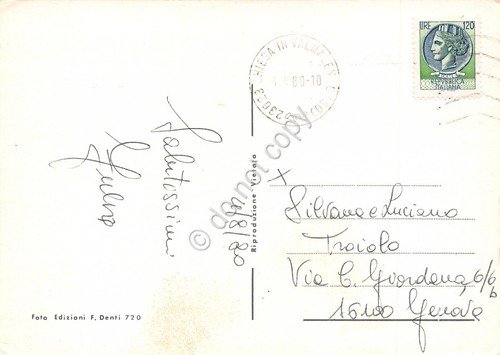 LIRE 120
REPUBBLICA
ITALIANA
CHIESA IN VALMALENCO
23023
Salutissimi
4/8/80
do not copy
Riproduzione Vietata
Silvana e Luciano
Troiolo
Via C. Giordana, 6/6
b
16100 Genova
Foto Edizioni F. Denti 720